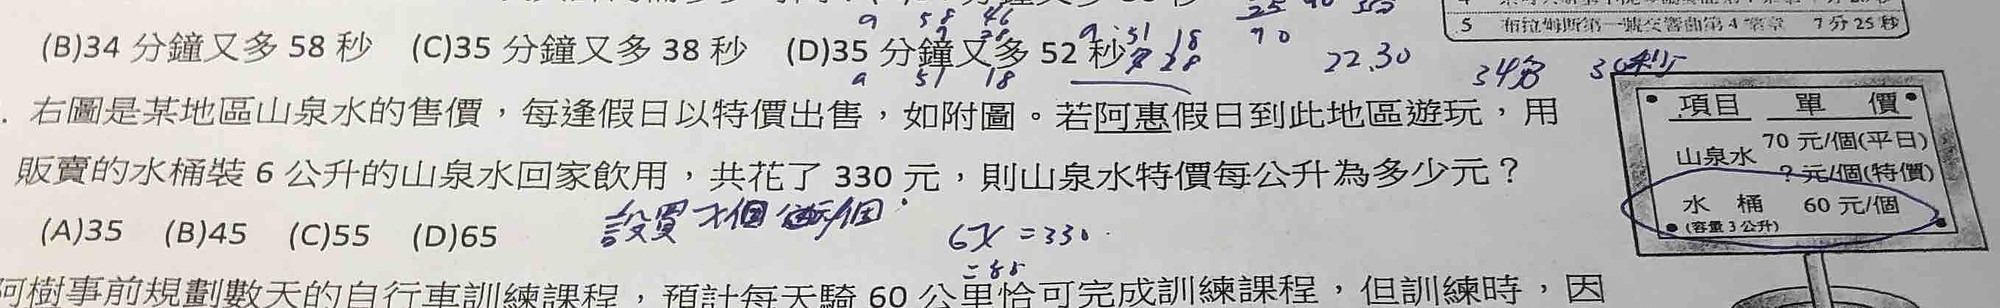 5 布拉姆斯第一號交響曲第4樂章 7分25秒
(B)34 分鐘又多 58 秒 (C)35 分鐘又多 38 秒 (D)35 分鐘又多 52 秒
22.30
34分
右圖是某地區山泉水的售價，每逢假日以特價出售，如附圖。若阿惠假日到此地區遊玩，用
販賣的水桶裝 6 公升的山泉水回家飲用，共花了 330 元，則山泉水特價每公升為多少元？
(A)35 (B)45 (C)55 (D)65
設買
6x = 330
項目 單價
山泉水 70 元/個(平日)
? 元/個(特價)
水桶 60 元/個
(容量 3 公升)
阿樹事前規劃數天的自行車訓練課程，預計每天騎 60 公里恰可完成訓練課程，但訓練時，因